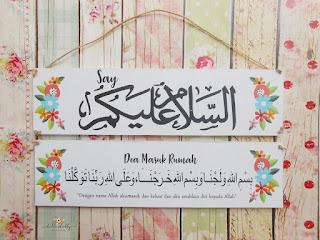 Say
السلام عليكم
Doa Masuk Rumah
بِسْمِ اللهِ وَلَجْنَا وَبِسْمِ اللهِ خَرَجْنَا وَعَلَى اللهِ رَبِّنَا تَوَكَّلْنَا
"Dengan nama Allah aku masuk dan keluar dan aku serahkan diri kepada Allah"